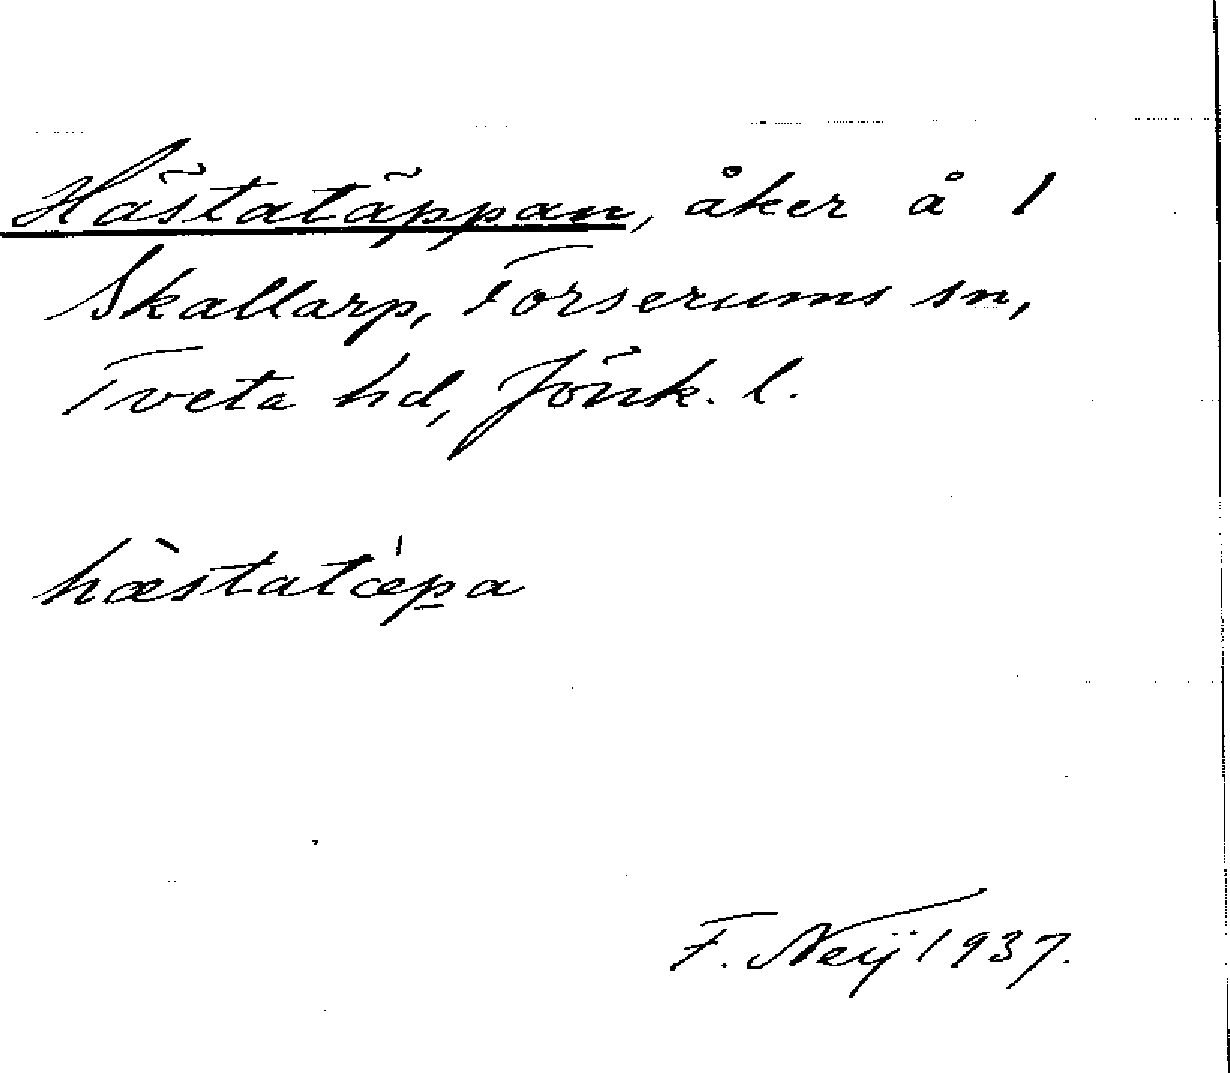 Hästatäppan, åker å 1
Skallarp, Forserums sn,
Tveta hd, Jönk. l.
hæ̀statǽp̲a
F. Neij 1937.